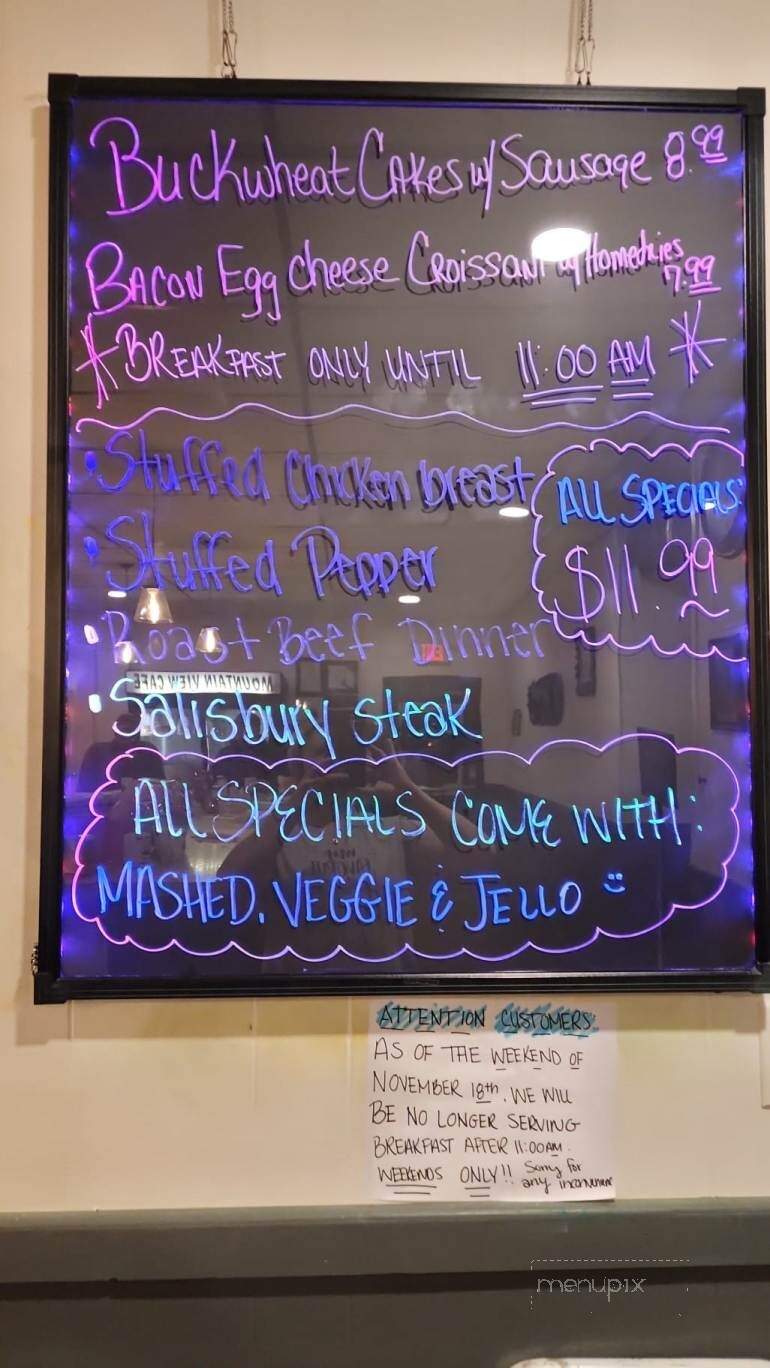 Buckwheat Cakes w/ Sausage 8.99
Bacon Egg cheese Croissant w/ Homefries
7.99
* BREAKFAST ONLY UNTIL 11:00 AM *
• Stuffed Chicken breast
ALL SPECIALS:
$11.99
• Stuffed Pepper
• Roast Beef Dinner
• Salisbury steak
MOUNTAIN VIEW CAFE
ALL SPECIALS COME WITH:
MASHED, VEGGIE & JELLO
ATTENTION CUSTOMERS:
AS OF THE WEEKEND OF
NOVEMBER 18th, WE WILL
BE NO LONGER SERVING
BREAKFAST AFTER 11:00AM.
WEEKENDS ONLY!! Sorry for
any inconvenience
menupix